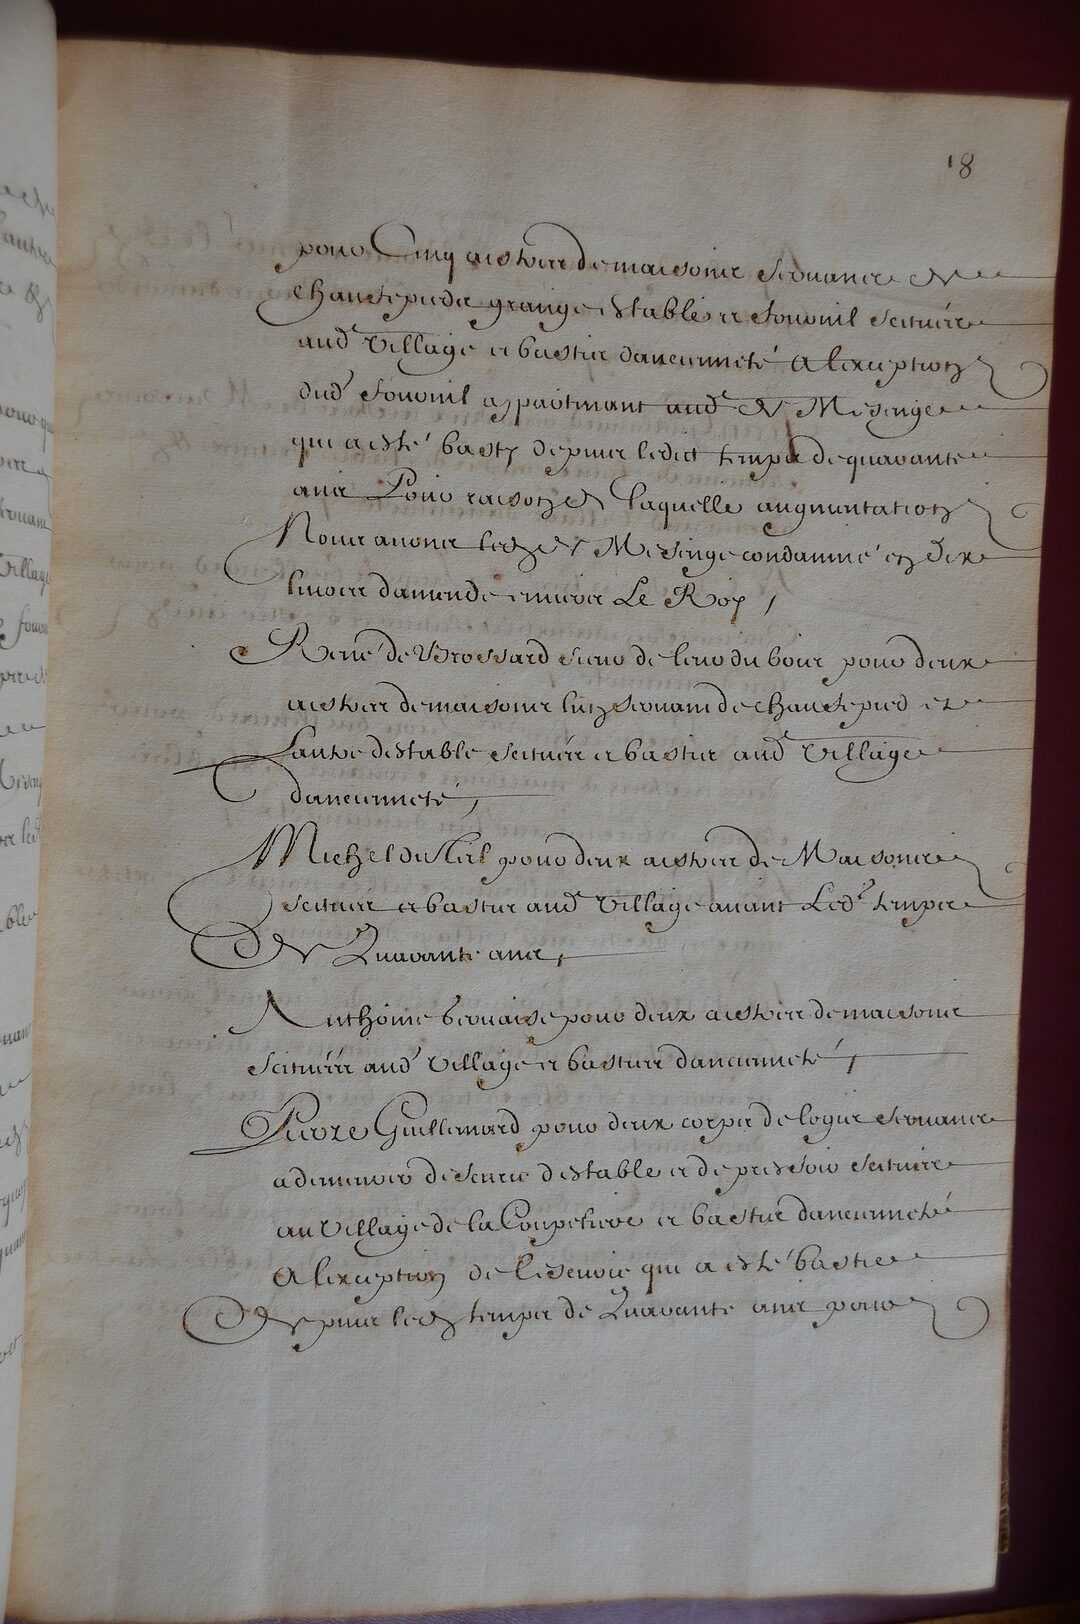 18
pour Cinq aistres de maisons servans de
chaufepieds grange estables et fournil scituées
aud village et bastis dancienneté a lexception
dud fournil appartenant aud de Mesenge
qui a esté basty depuis ledict temps de quarante
ans Pour raison de laquelle augmentation
Nous avons led de Mesenge condamné en dix
livres damende envers Le Roy /
René de Brossard sieur de leru du bois pour deux
aistres de maisons lun servant de chaufepied et
Lautre destable scituées et basties aud village
dancienneté,
Michel du pour deux aistres de Maisons
scitués et bastis aud village avant Led temps
De Quarante ans,
Anthoine Gervaise pour deux aistres de maisons
scituées aud village et basties dancienneté,
Pierre Guillemard pour deux corps de logis servans
a demeure descurie destable et de pressoir scitués
au village de la Coupeliere et bastis dancienneté
A lexception de lescurie qui a esté bastie
Depuis led temps de Quarante ans pour